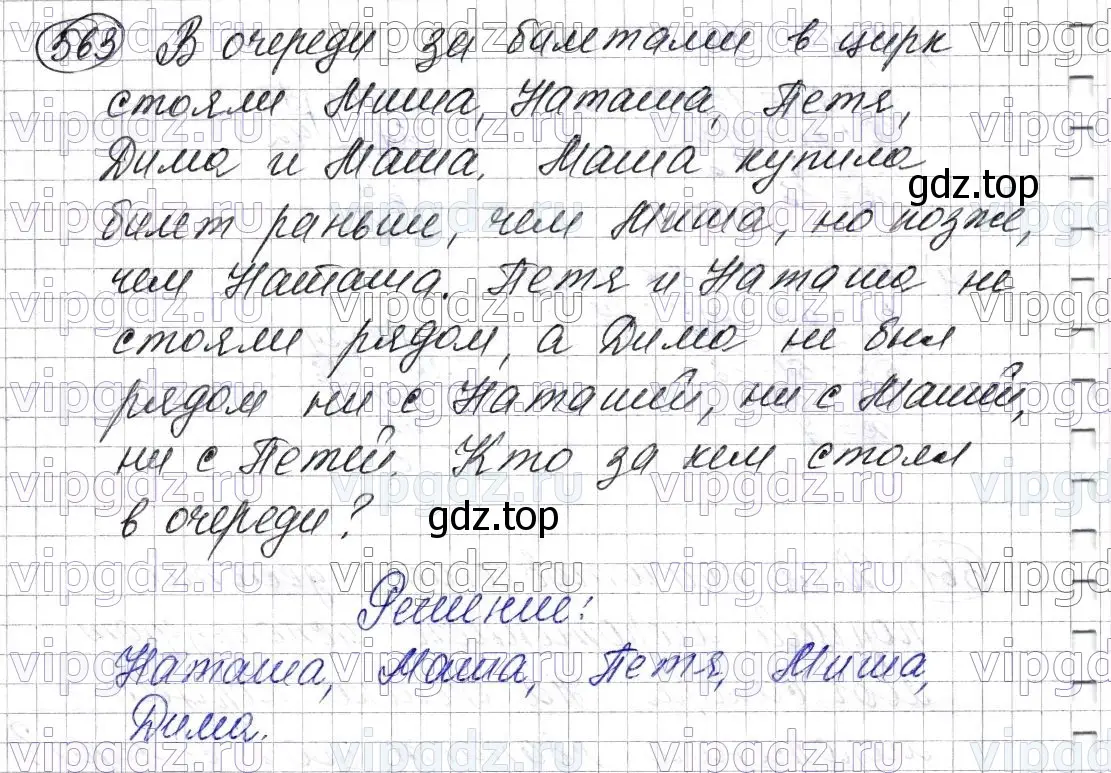 563 В очереди за билетами в цирк
стояли Миша, Наташа, Петя,
Дима и Маша. Маша купила
gdz.top
билет раньше, чем Миша, но позже,
чем Наташа. Петя и Наташа не
стояли рядом, а Дима не был
рядом ни с Наташей, ни с Машей,
ни с Петей. Кто за кем стоял
в очереди?
gdz.top
Решение:
Наташа, Маша, Петя, Миша,
Дима.
vipgdz.ru